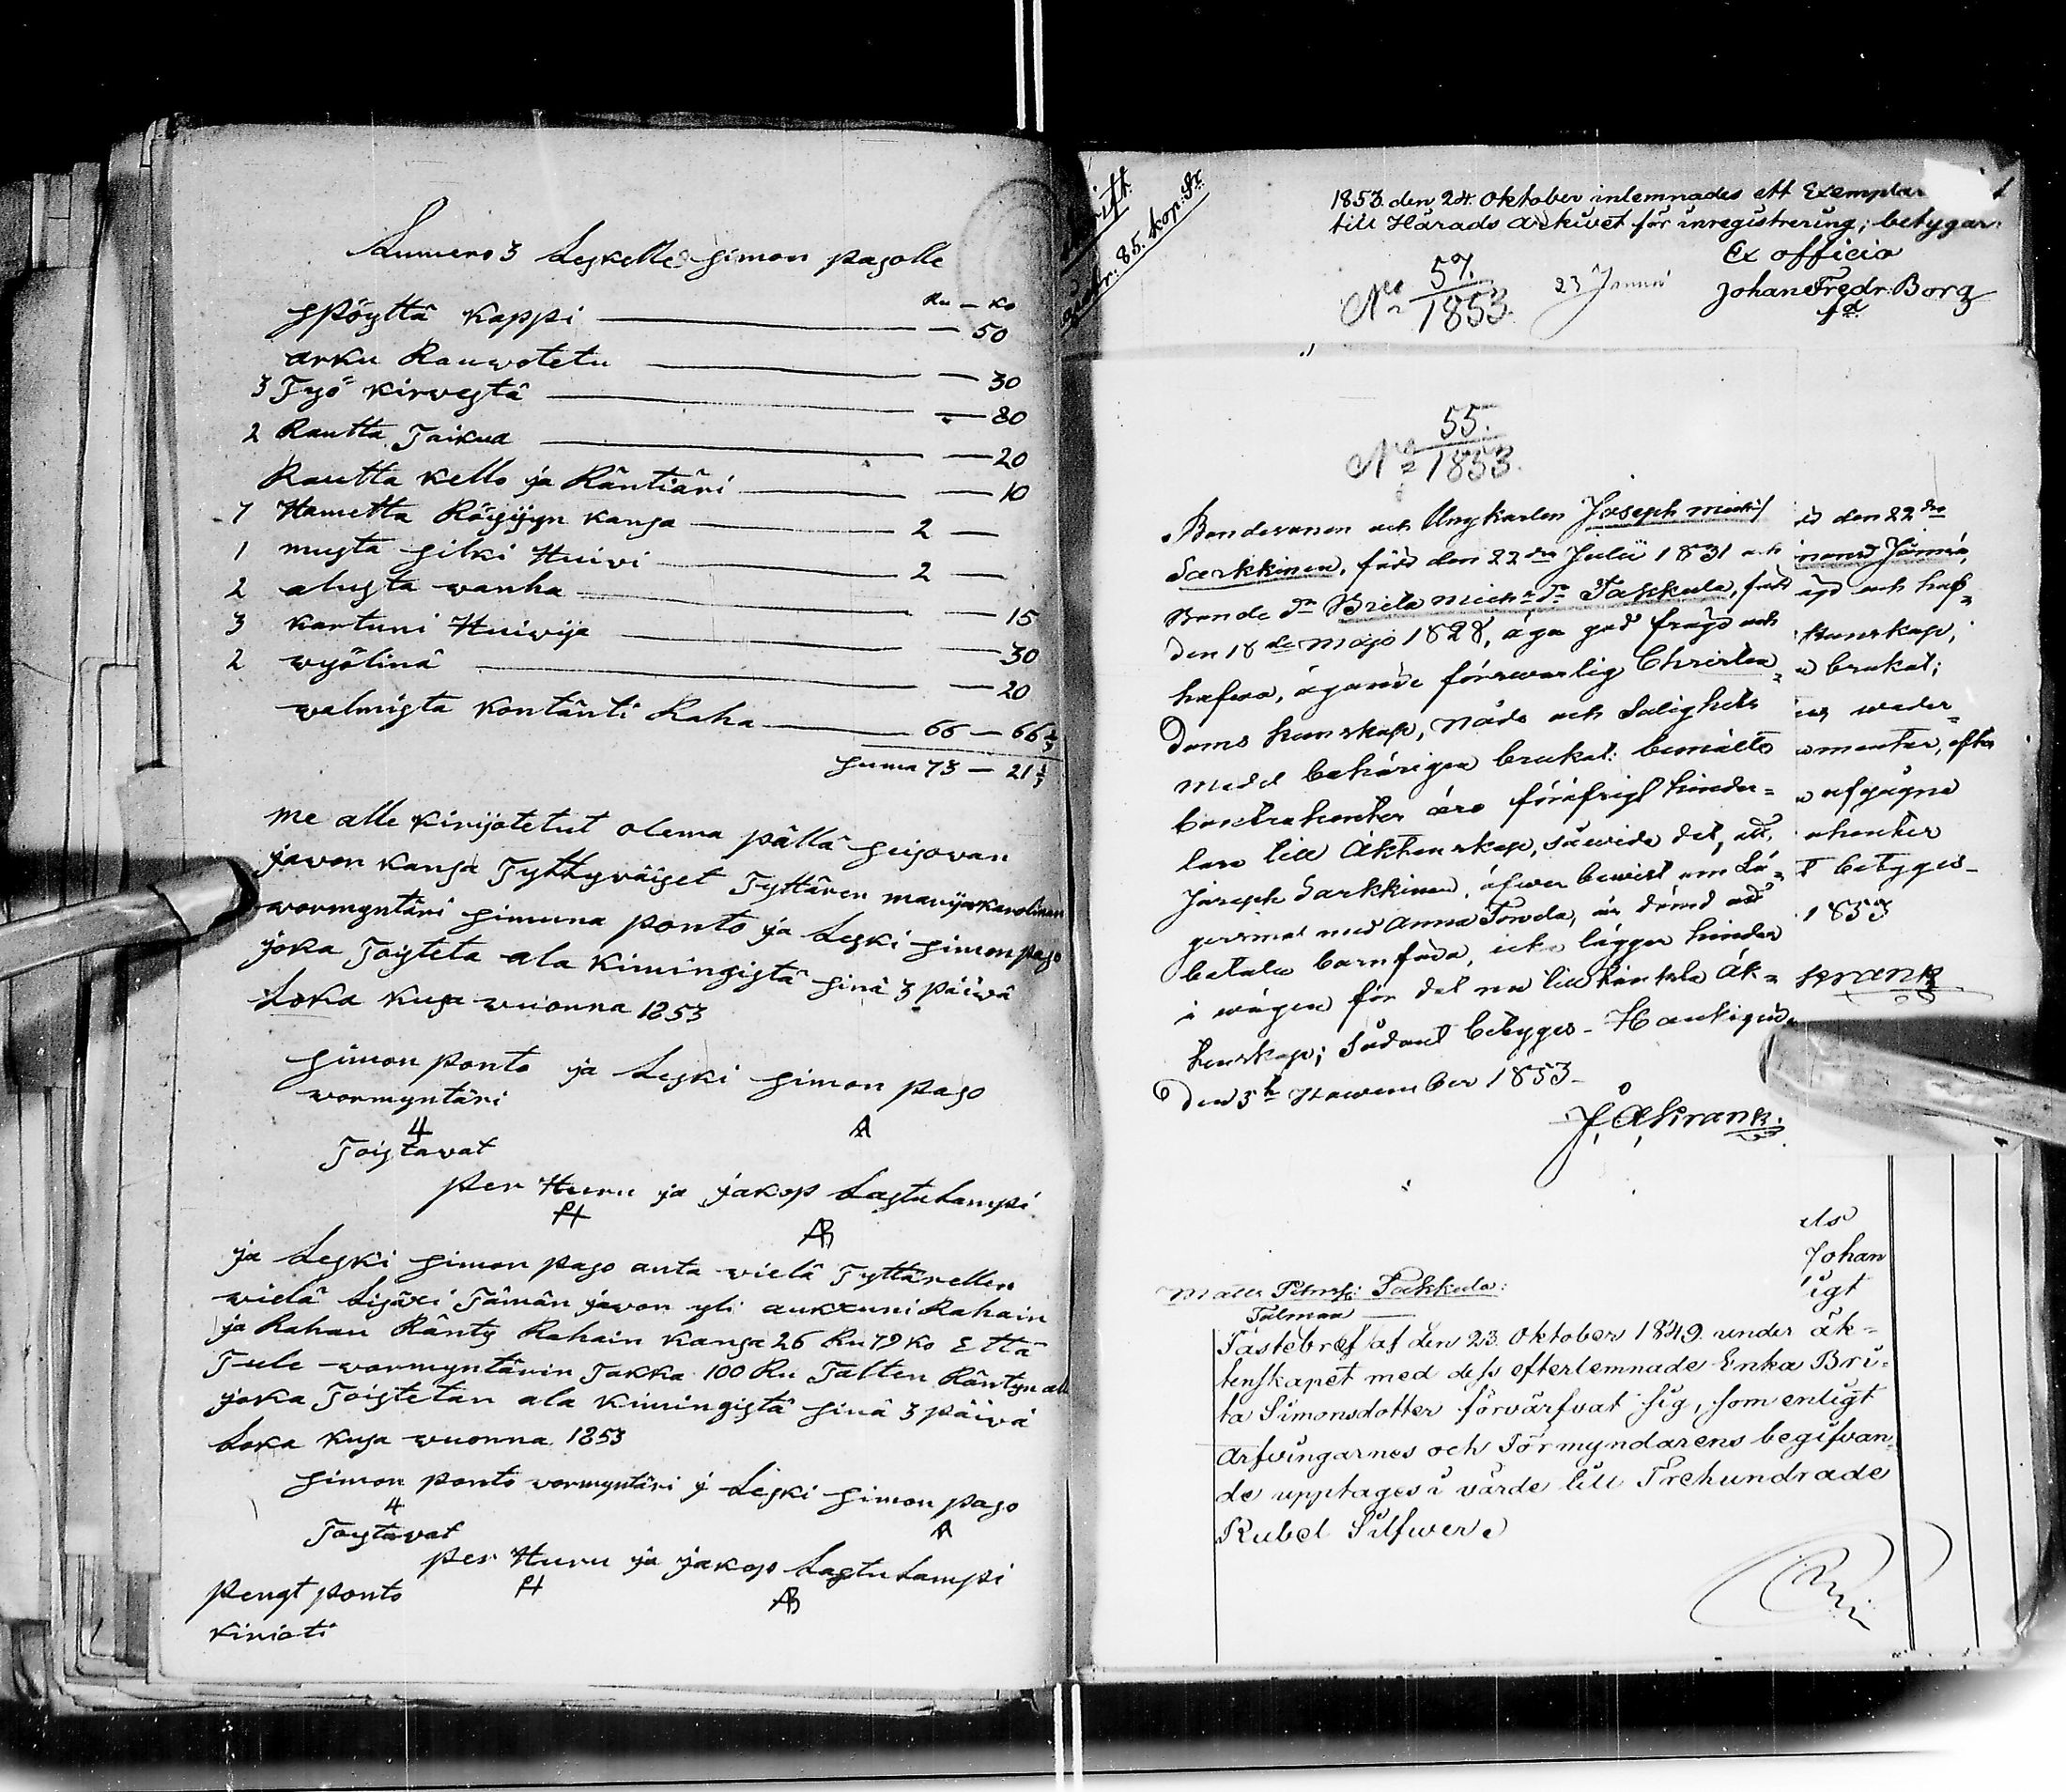 Numero 3 Leskelle Simon pasolle
Ru — Ko
spöyttä kappi — 50
arku Rauwotetu — 30
3 Työ kirvestä — 80
2 Rautta Taikua — 20
Rautta kello ja Räntiäri — 10
7 Hametta Röijyyn kansa 2 —
1 musta silki Huivi 2 —
2 alusta wanha — 15
3 kartuni Huivija — 30
2 wyölinä — 20
walmista kontänti Raha 66 — 66 2/3
suma 73 — 21 2/3
me alle kirijotetut olema pällä seisovan
javon kansa Tyttyväiset Tyttären marija karolinan
wormyntäri simuna ponto ja Leski simon paso
joka Toisteta ala Kimingistä sinä 3 päivä
Loka kusa wuonna 1853
simon ponto ja Leski simon paso
wormyntäri
4
Toistavat
per Huru ja jakop Lastulampi
PH
ja Leski simon paso anta vielä Tyttärellen
wielä Lisäxi Tämän javon yli auxuni Rahain
ja Rahan Ränty Rahain kansa 26 Ru 79 ko Että
Tule wormyntärin Takka 100 Ru Talten Räntyn
joka Toistetan ala Kimingistä sinä 3 päivä
Loka kusa wuonna 1853
simon ponto wormyntäri j Leski simon paso
4
Toistavat
per Huru ja jakop Lastulampi
PH
pengt ponto
kirioti
85. kop: Sr
1853. den 24. Oktober inlemnades ett Exemplar
till Härads Arkivet för inregistrering; betygar.
Ex officio
Johan Fredr: Borg
No 57. 1853. 23 Januari
No 55. 1853.
Bondesonen och Ungkarlen Joseph
Sarkkinen, född den 22dra Julii 1831 och
Bonde dr Brita Mich:s dr Takkula, född
den 18de Maji 1828, äga god frägd och
hafwa, ägande förswarlig Christen=
doms kunskap, Nåde och Salighets
Medel behörigen brukat: bemälte
Contrahenter äro föröfrigt hinder=
lösa till Äktenskap, såwida det, att
Joseph Sarkkinen, öfwer bewist om Lä=
gersmål med Anna Towila, är dömd att
betala barnföda, icke lägger hinder
i wägen för det nu tillärnade Äk=
tenskap; Sådant betyges - Haukipudas
den 5te November 1853 -
J, A, Krank.
den 22dra
kunskap;
brukat;
weder=
efter
afgågne
betyges-
1853
Krank
Johan
Matts Petters: Takkula:
Talman
Fastebref af den 23. Oktober 1849. under äk=
tenskapet med dess efterlemnade Enka Bri=
ta Simonsdotter förvärfvat sig, som enligt
Arfvingarnes och Förmyndarens begifvan=
de upptages i värde till Trehundrade
Rubel Silfwer